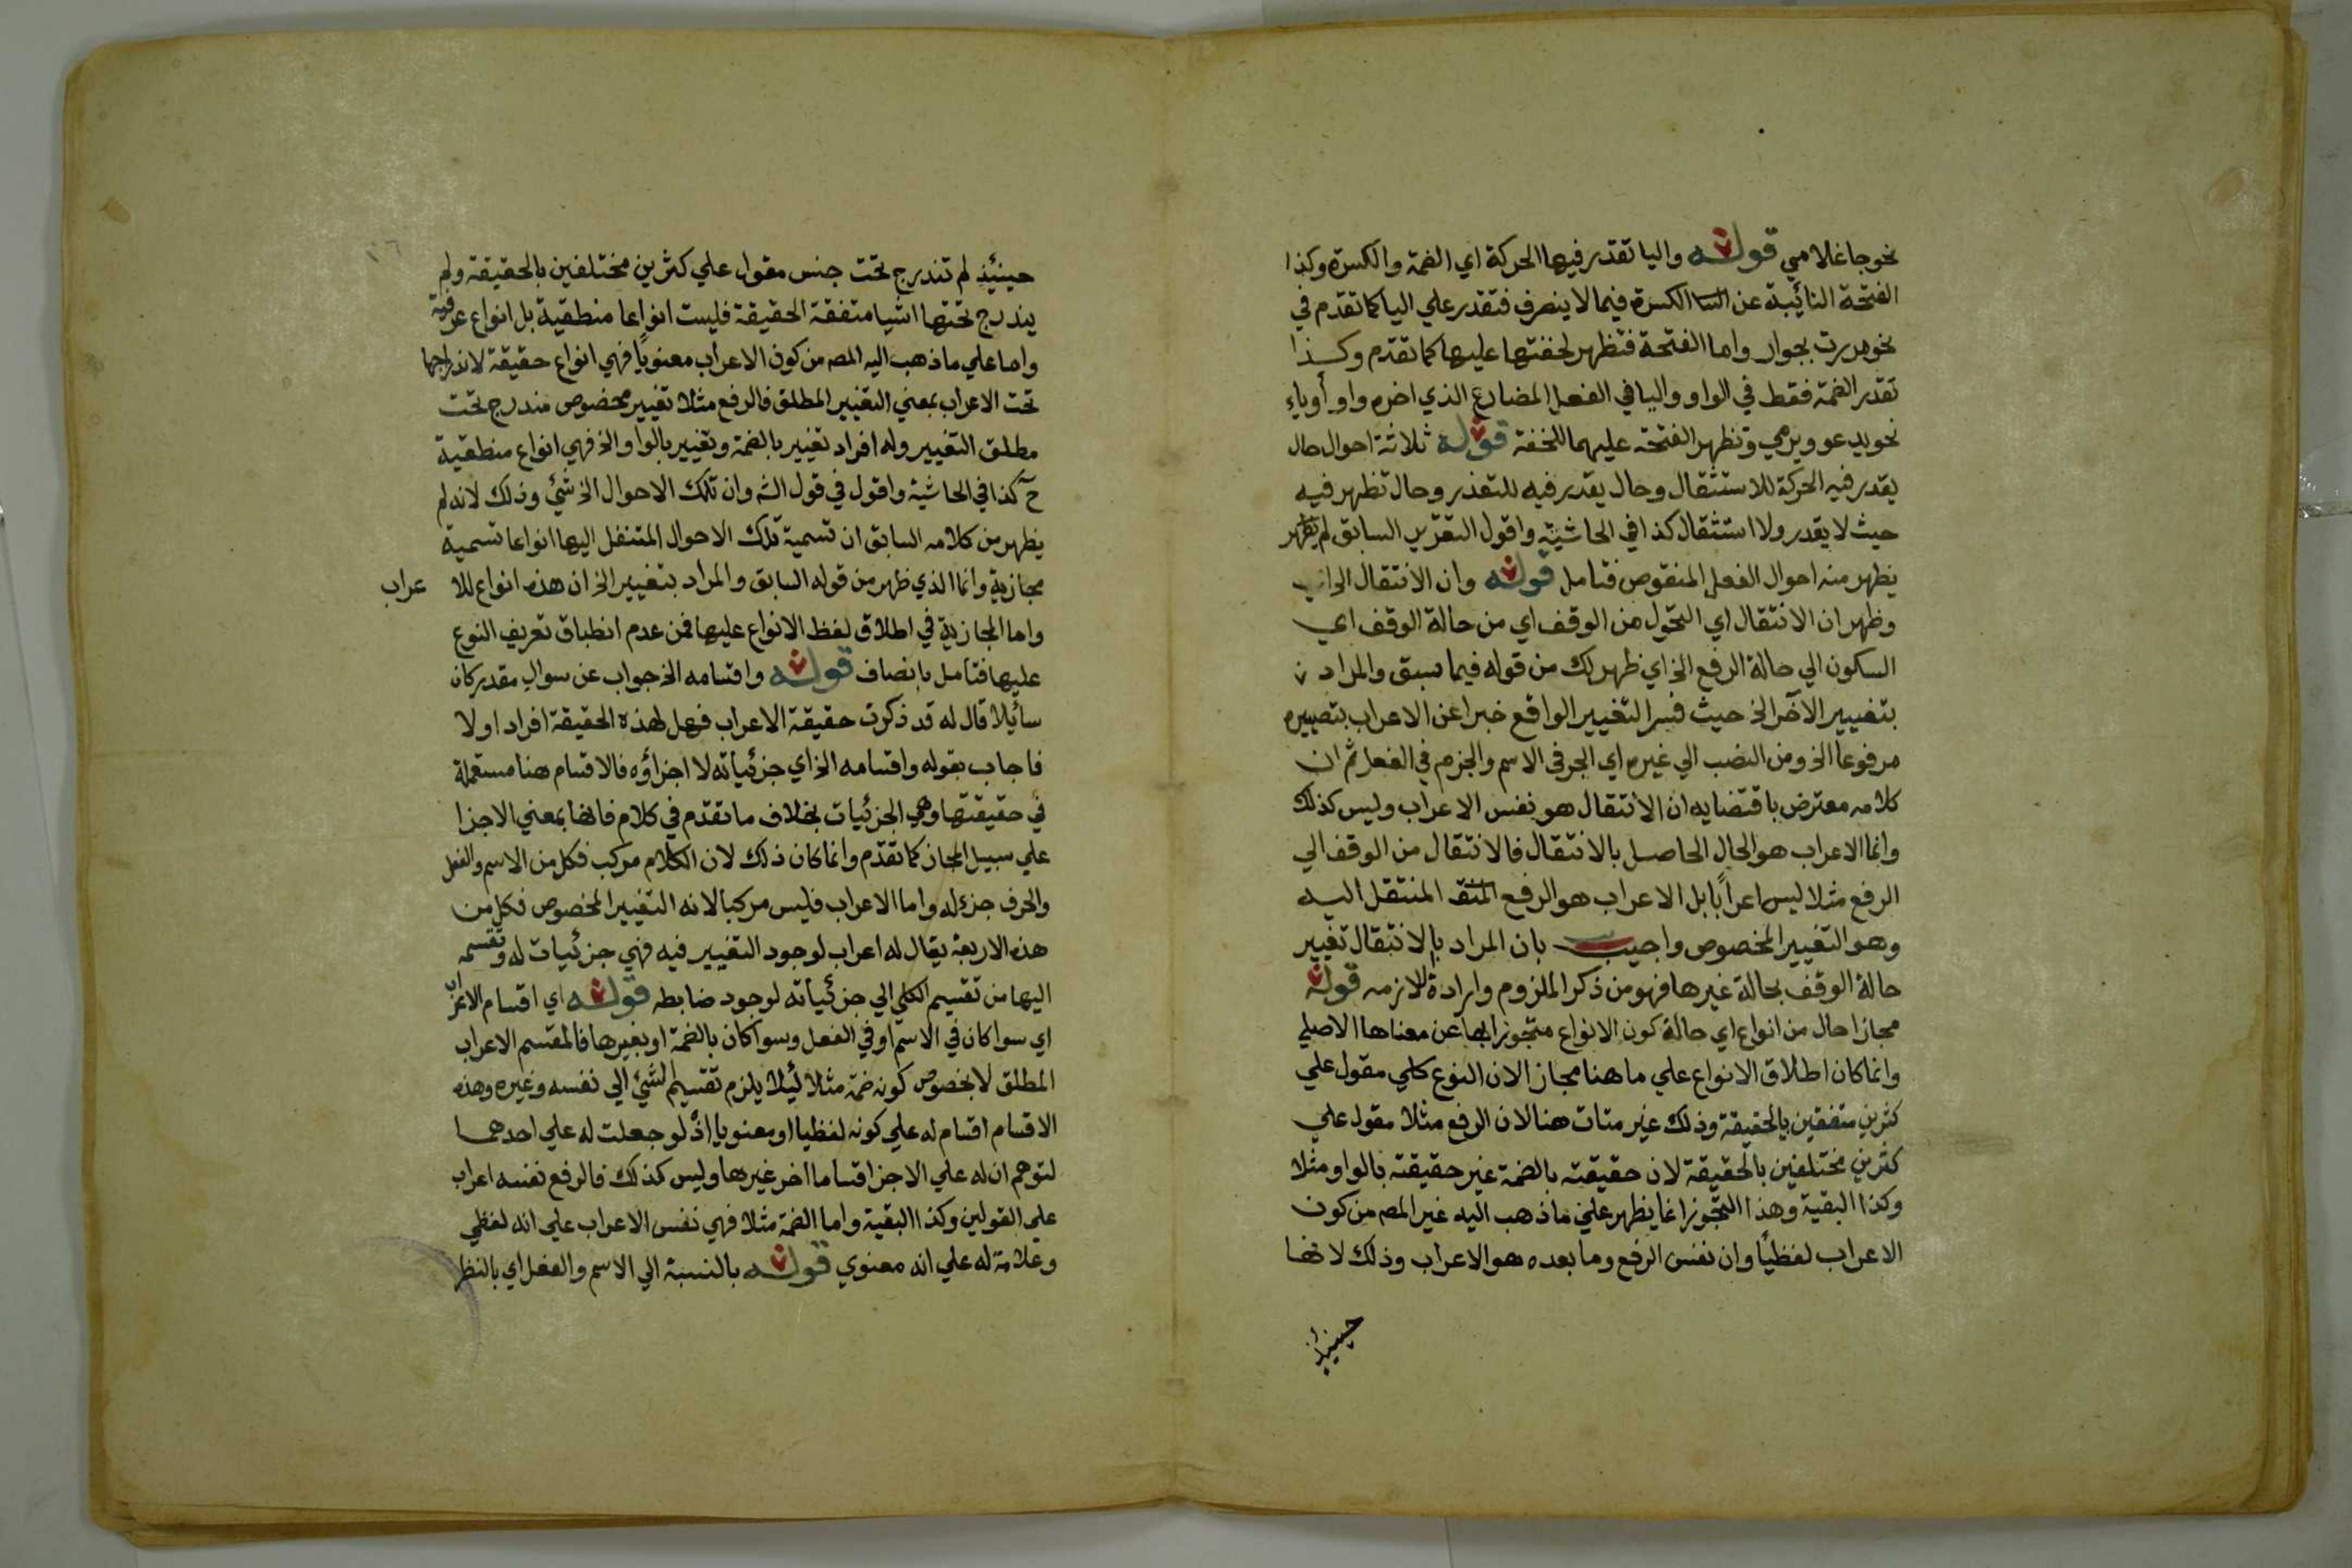 نحو جا غلامي قوله واليا تقدر فيها الحركة اي الضمة والكسرة وكذا
الفتحة النائبة عن الكسرة فيما لا ينصرف فتقدر علي اليا كما تقدم في
نحو مررت بجوار واما الفتحة فتظهر لخفتها عليها كما تقدم وكذا
تقدر الضمة فقط في الواو واليا في الفعل المضارع الذي اخره واو أوياء
نحو يدعو ويرمي وتظهر الفتحة عليهما للخفة قوله ثلاثة احوال حال
يقدر فيه الحركة للاستثقال وحال يقدر فيه للتعذر وحال تظهر فيه
حيث لا يقدر ولا استثقال كذا في الحاشية واقول التقرير السابق لم يظهر
يظهر منه احوال الفعل المنقوص فتامل قوله وان الانتقال الخ اي
وظهر ان الانتقال اي التحول من الوقف اي من حالة الوقف اي
السكون الي حالة الرفع الخ اي ظهر لك من قوله فيما سبق والمراد
بتغيير الآخر الخ حيث فسر التغيير الواقع خبرا عن الاعراب بتصييره
مرفوعا الخ ومن النصب الي غيره اي الجر في الاسم والجزم في الفعل ثم ان
كلامه معترض باقتضايه ان الانتقال هو نفس الاعراب وليس كذلك
وانما الاعراب هو الحال الحاصل بالانتقال فالانتقال من الوقف الي
الرفع مثلا ليس اعرابًا بل الاعراب هو الرفع المنتقل اليه
وهو التغيير المخصوص واجيب بان المراد بالانتقال تغيير
حالة الوقف بحالة غيرها فهو من ذكر الملزوم وارادة لازمه قوله
مجازا حال من انواع اي حالة كون الانواع متجوزا بها عن معناها الاصلي
وانما كان اطلاق الانواع علي ما هنا مجازا لان النوع كلي مقول علي
كثرين متفقين بالحقيقة وذلك غير متات هنا لان الرفع مثلا مقول علي
كثرين مختلفين بالحقيقة لان حقيقته بالضمة غير حقيقته بالواو مثلا
وكذا البقية وهذا التجوز انما يظهر علي ما ذهب اليه غير المصـ من كون
الاعراب لفظيًا وان نفس الرفع وما بعده هو الاعراب وذلك لانها
حينيذ
حينئذ لم تندرج تحت جنس مقول علي كثرين مختلفين بالحقيقة ولم
يندرج تحتها اشيا متفقة الحقيقة فليست انواعا منطقية بل انواع عرفية
واما علي ما ذهب اليه المصـ من كون الاعراب معنويًا فهي انواع حقيقة لاندراجها
تحت الاعراب بمعني التغيير المطلق فالرفع مثلا تغيير مخصوص مندرج تحت
مطلق التغيير وله افراد تغيير بالضمة وتغيير بالواو الخ فهي انواع منطقية
ح كذا في الحاشية واقول في قول الشـ وان تلك الاحوال الخ شئ وذلك لانه لم
يظهر من كلامه السابق ان تسمية تلك الاحوال المتنقل اليها انواعا تسمية
مجازية وانما الذي ظهر من قوله السابق والمراد بتغيير الخ ان هذه انواع للاعراب
واما المجازية في اطلاق لفظ الانواع عليها فمن عدم انطباق تعريف النوع
عليها فتامل بانصاف قوله واقسامه الخ جواب عن سوال مقدر كان
سائلا قال له قد ذكرت حقيقة الاعراب فهل لهذه الحقيقة افراد اولا
فاجاب بقوله واقسامه الخ اي جزئياته لا اجزاؤه فالاقسام هنا مستعملة
في حقيقتها وهي الجزئيات بخلاف ما تقدم في كلام فانها بمعني الاجزا
علي سبيل المجاز كما تقدم وانما كان ذلك لان الكلام مركب فكل من الاسم والفعل
والحرف جزء له واما الاعراب فليس مركبا لانه التغيير المخصوص فكل من
هذه الاربعة يقال له اعراب لوجود التغيير فيه فهي جزئيات له وتقسمه
اليها من تقسيم الكلي الي جزئياته لوجود ضابطه قوله اي اقسام الاعراب
اي سوا كان في الاسم او في الفعل وسوا كان بالضمة او بغيرها فالمقسم الاعراب
المطلق لا بخصوص كونه ضمة مثلا ليلا يلزم تقسيم الشئ الي نفسه وغيره وهذه
الاقسام اقسام له علي كونه لفظيا او معنويا اذ لو جعلت له علي احدهما
لتوهم ان له علي الاخر اقساما اخر غيرها وليس كذلك فالرفع نفسه اعراب
علي القولين وكذا البقية واما الضمة مثلا فهي نفس الاعراب علي انه لفظي
وعلامة له علي انه معنوي قوله بالنسبة الي الاسم والفعل اي بالنظر